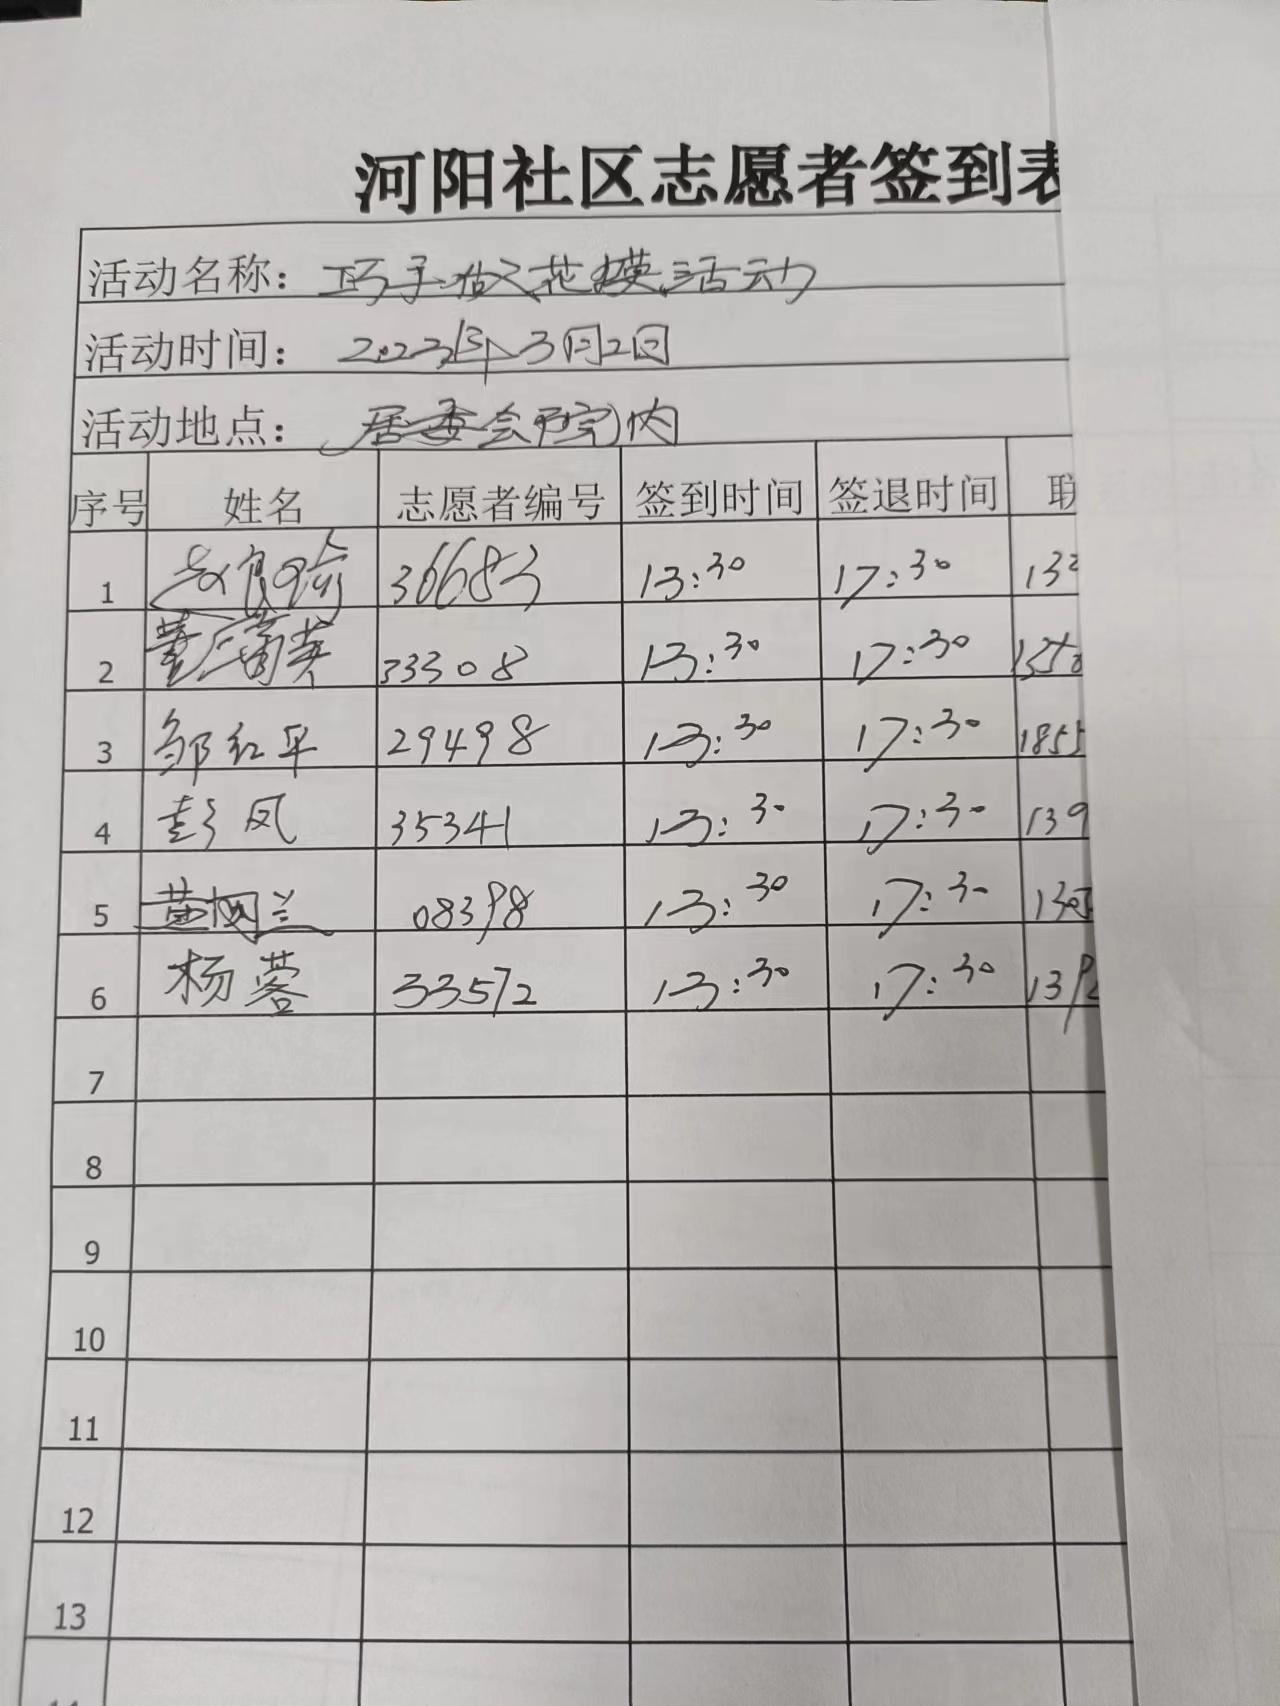 河阳社区志愿者签到表
活动名称：巧手做花馍活动
活动时间：2023年3月2日
活动地点：居委会院内
序号 姓名 志愿者编号 签到时间 签退时间 联
1 36683 13:30 17:30 132
2 33308 13:30 17:30 1350
3 邹红平 29498 13:30 17:30 1855
4 彭凤 35341 13:30 17:30 139
5 08398 13:30 17:30 130
6 杨蓉 33572 13:30 17:30 139
7
8
9
10
11
12
13